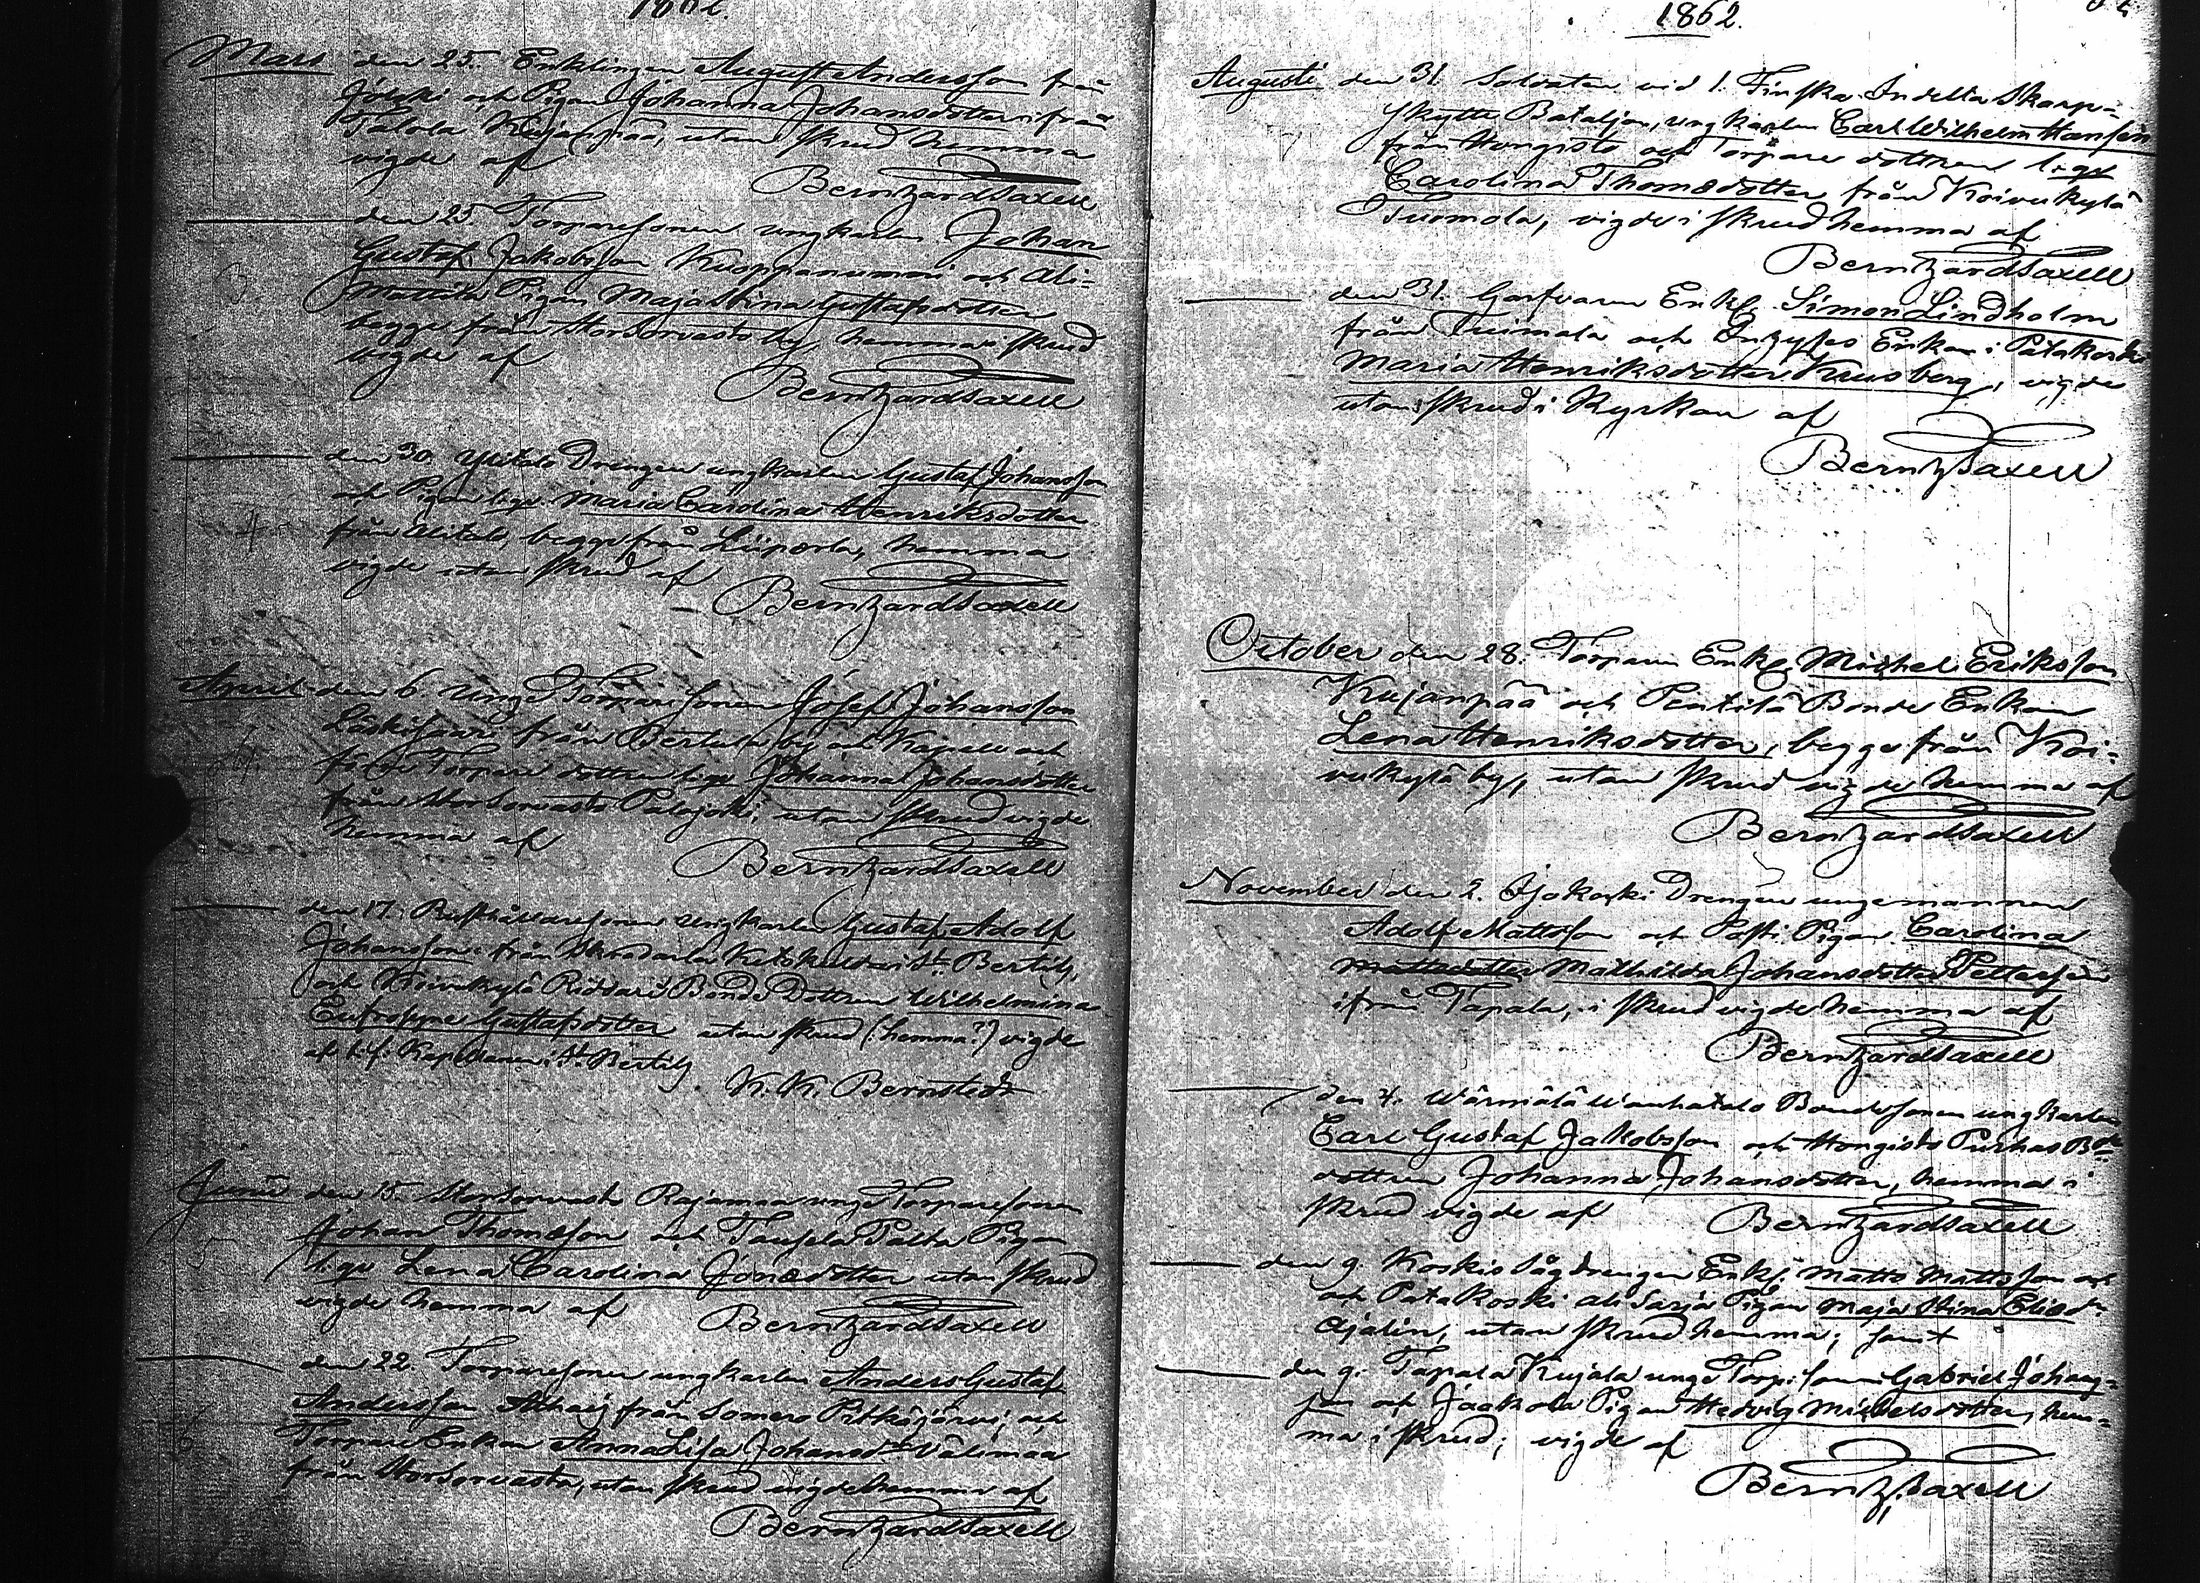 1862.
Mars den 25. Enklingen August Andersson från
Jötski och Pigan Johanna Johansdotter ifrån
Talola Kujanpää, utan skrud hemma
vigde af
Berntzardsaxell
den 25. Torparesonen ungkarlen Johan
Gustaf Jakobsson Kuoppanummi och Ali-
Mattila Pigan Maja Stina Gustafsdotter
begge från Storsorvasto by, hemma i skrud
vigde af
Berntzardsaxell
den 30. Ylitalo Drengen ungkarlen Gustaf Johansson
och Pigan Maria Carolina Henriksdotter
från Ylitalo, begge från Liipola, hemma
vigde utan skrud af
Berntzardsaxell
April den 6. unge Torparesonen Josef Johansson
från Bertula by och Kapell och
Torpare dottren Johanna Johansdotter
från Storsorvasto Palojoki, utan skrud vigde
hemma af
Berntzardsaxell
den 17. Rusthållaresonen Ungkarlen Gustaf Adolf
Johansson från i St. Bertils,
och Koivukylä Bonde Dottren Wilhelmina
Eufrosyne Gustafsdotter utan skrud (: hemma?) vigde
af Kapellanen i St. Bertils
K. K. Bernstedt
Junii den 15. Storsorvasto Rajamaa unge Torparesonen
Johan Thomæson och Pigan
Lena Carolina Jonædotter utan skrud
vigde hemma af
Berntzardsaxell
den 22. Torparesonen ungkarlen Anders Gustaf
Andersson från Somero Pitkäjärvi, och
Torpare Enkan Anna Lisa Johansdr Välimaa
från Storsorvasto, utan skrud vigde hemma af
Berntzardsaxell
1862.
Augusti den 31. Soldaten vid 1. Finska Indelta Skarp-
skytte Bataljon, ungkarlen Carl Wilhelm Hansson
från Hongisto och Torpare dottren l: qv
Carolina Thomædotter från Koivukylä
Tuomola, vigde i skrud hemma af
Berntzardsaxell
den 31. Garfvaren Enkl. Simon Lindholm
från Tuimala och Inhyses Enkan i Patakoski
Maria Henriksdotter Krusberg, vigde
utan skrud i Kyrkan af
Berntz Saxell
October den 28. Torparen Enkl. Michel Eriksson
Kujanpää och Penttilä Bonde Enkan
Lena Henriksdotter, begge från Koi-
vukylä by, utan skrud vigde hemma af
Berntzardsaxell
November den 2. Isjokoski Drengen unge mannen
Adolf Mattsson och Pigan Carolina
Mattsdotter Mathilda Johansdotter Petterson
ifrån Tapala, i skrud vigde hemma af
Berntzardsaxell
den 4. Wärmälä Wanhatalo Bondesonen ungkarlen
Carl Gustaf Jakobsson och Hongisto Purhas Bde
dottren Johanna Johansdotter, hemma i
skrud vigde af Berntzardsaxell
den 9. Koskis Sågdrengen Enkl. Matts Mattsson och
och Patakoski Ali Sarja Pigan Maja Stina Eliædr
Ajalin, utan skrud hemma; samt
den 9. Tapala Kujala unge Torp: sonen Gabriel Johans-
son och Jaakola Pigan Hedvig Michelsdotter, hem-
ma i skrud; vigde af
Berntz Saxell